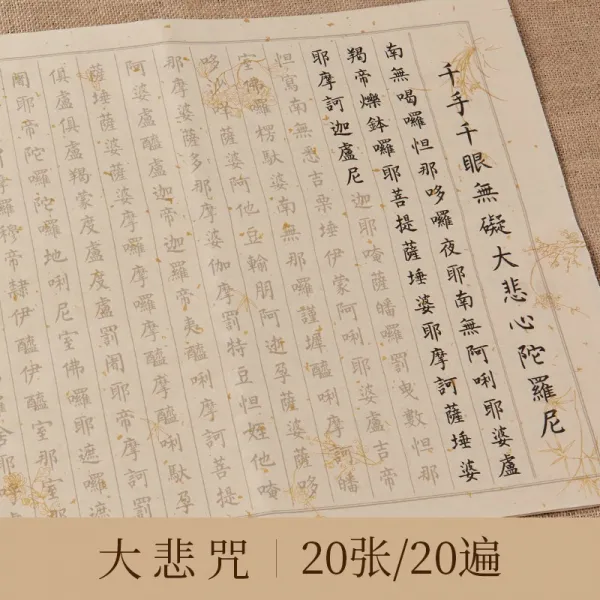 千手千眼無礙大悲心陀羅尼
南無喝囉怛那哆囉夜耶南無阿唎耶婆盧
羯帝爍鉢囉耶菩提薩埵婆耶摩訶薩埵婆
耶摩訶迦盧尼迦耶唵薩皤囉罰曳數怛那
怛寫南無悉吉栗埵伊蒙阿唎耶婆盧吉帝
室佛囉楞馱婆南無那囉謹墀醯唎摩訶皤
哆咩薩婆阿他豆輸朋阿逝孕薩婆薩哆
那摩婆薩多那摩婆伽摩罰特豆怛姪他唵
阿婆盧醯盧迦帝迦羅帝夷醯唎摩訶菩提
薩埵薩婆薩婆摩囉摩囉摩醯摩醯唎馱孕
俱盧俱盧羯蒙度盧度盧罰闍耶帝摩訶罰
闍耶帝陀囉陀囉地唎尼室佛囉耶遮囉遮
囉穆帝隸伊醯伊醯室那室
舍耶
大悲咒 20张/20遍